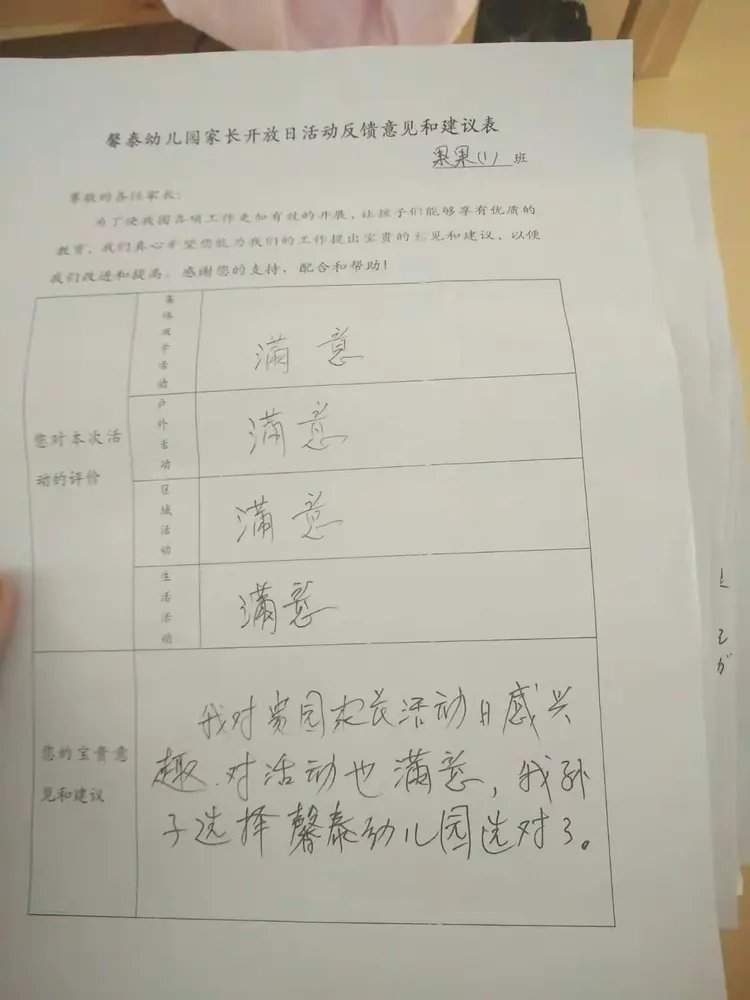 馨泰幼儿园家长开放日活动反馈意见和建议表
果果(1) 班
尊敬的各位家长:
为了使我园各项工作更加有效的开展,让孩子们能够享有优质的
教育,我们真心希望您能为我们的工作提出宝贵的意见和建议、以便
我们改进和提高。感谢您的支持、配合和帮助!
您对本次活
动的评价
集体教学活动
满意
户外活动
满意
区域活动
满意
生活活动
满意
您的宝贵意
见和建议
我对贵园家长活动日感兴
趣、对活动也满意,我孙
子选择馨泰幼儿园选对了。